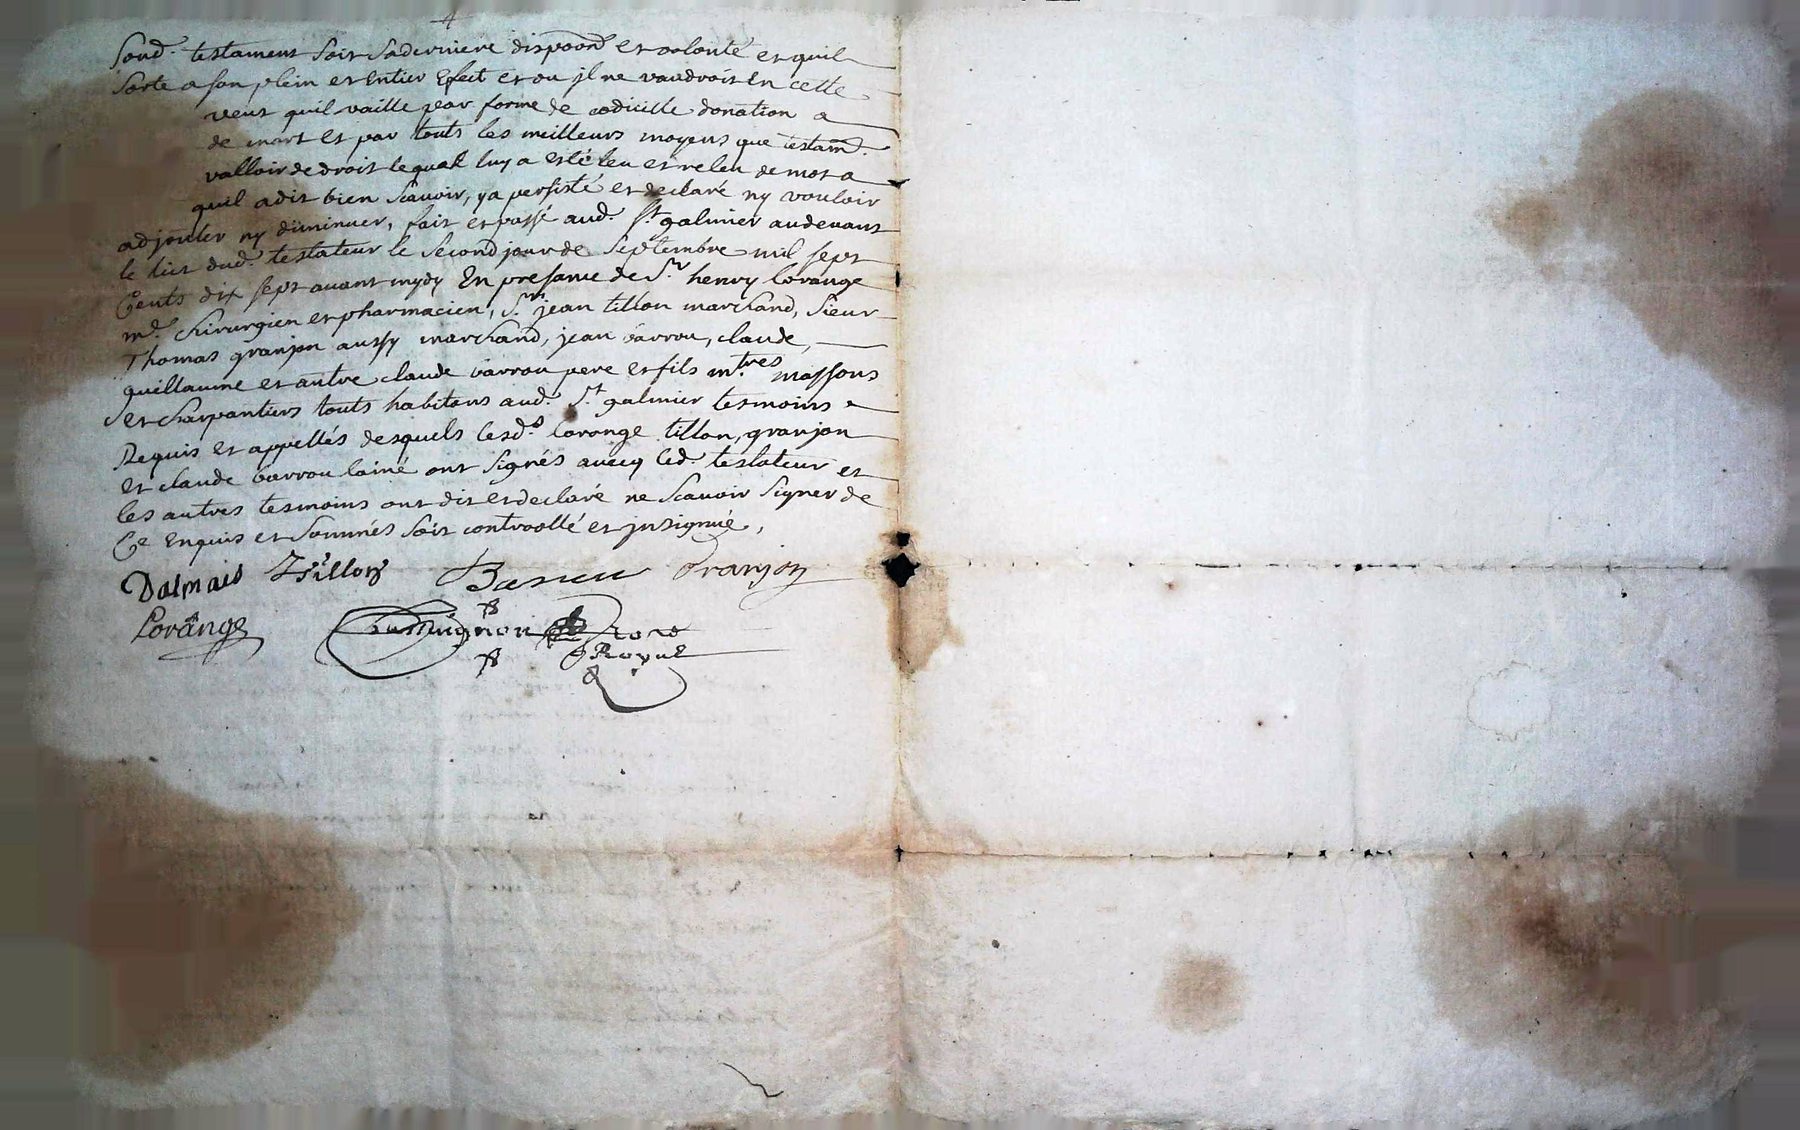 4
Sond. testament soit sa derniere dispoon et volonté et quil
sorte a son plein et entier Efect et ou jl ne vaudroit En cette
veut quil vaille par forme de codicille donation a
de mort et par touts les meilleurs moyens que testam.
valloir de droit lequel luy a esté leu et releu de mot a
quil a dit bien scauoir, y a persisté et declaré ny vouloir
adjouter ny diminuer, fait et passé aud. St galmier audevant
le lict dud. testateur le second jour de septembre mil sept
Cents dix sept auant mydy En presance de Sr henry Lorange
md. chirurgien et pharmacien, Sr jean tillon marchand, sieur
Thomas granjon aussy marchand, jean barrou, claude,
guillaume et autre claude barrou pere et fils mtres massons
et charpantiers touts habitans aud. St galmier tesmoins
Requis et appellés desquels lesds Lorange tillon, granjon
et claude barrou lainé ont signés auecq led. testateur et
les autres tesmoins ont dit et declaré ne scauoir signer de
Ce enquis et sommés soit controollé et jnsignué,
Dalmais Tillon Barrou Granjon
Lorange
Royal